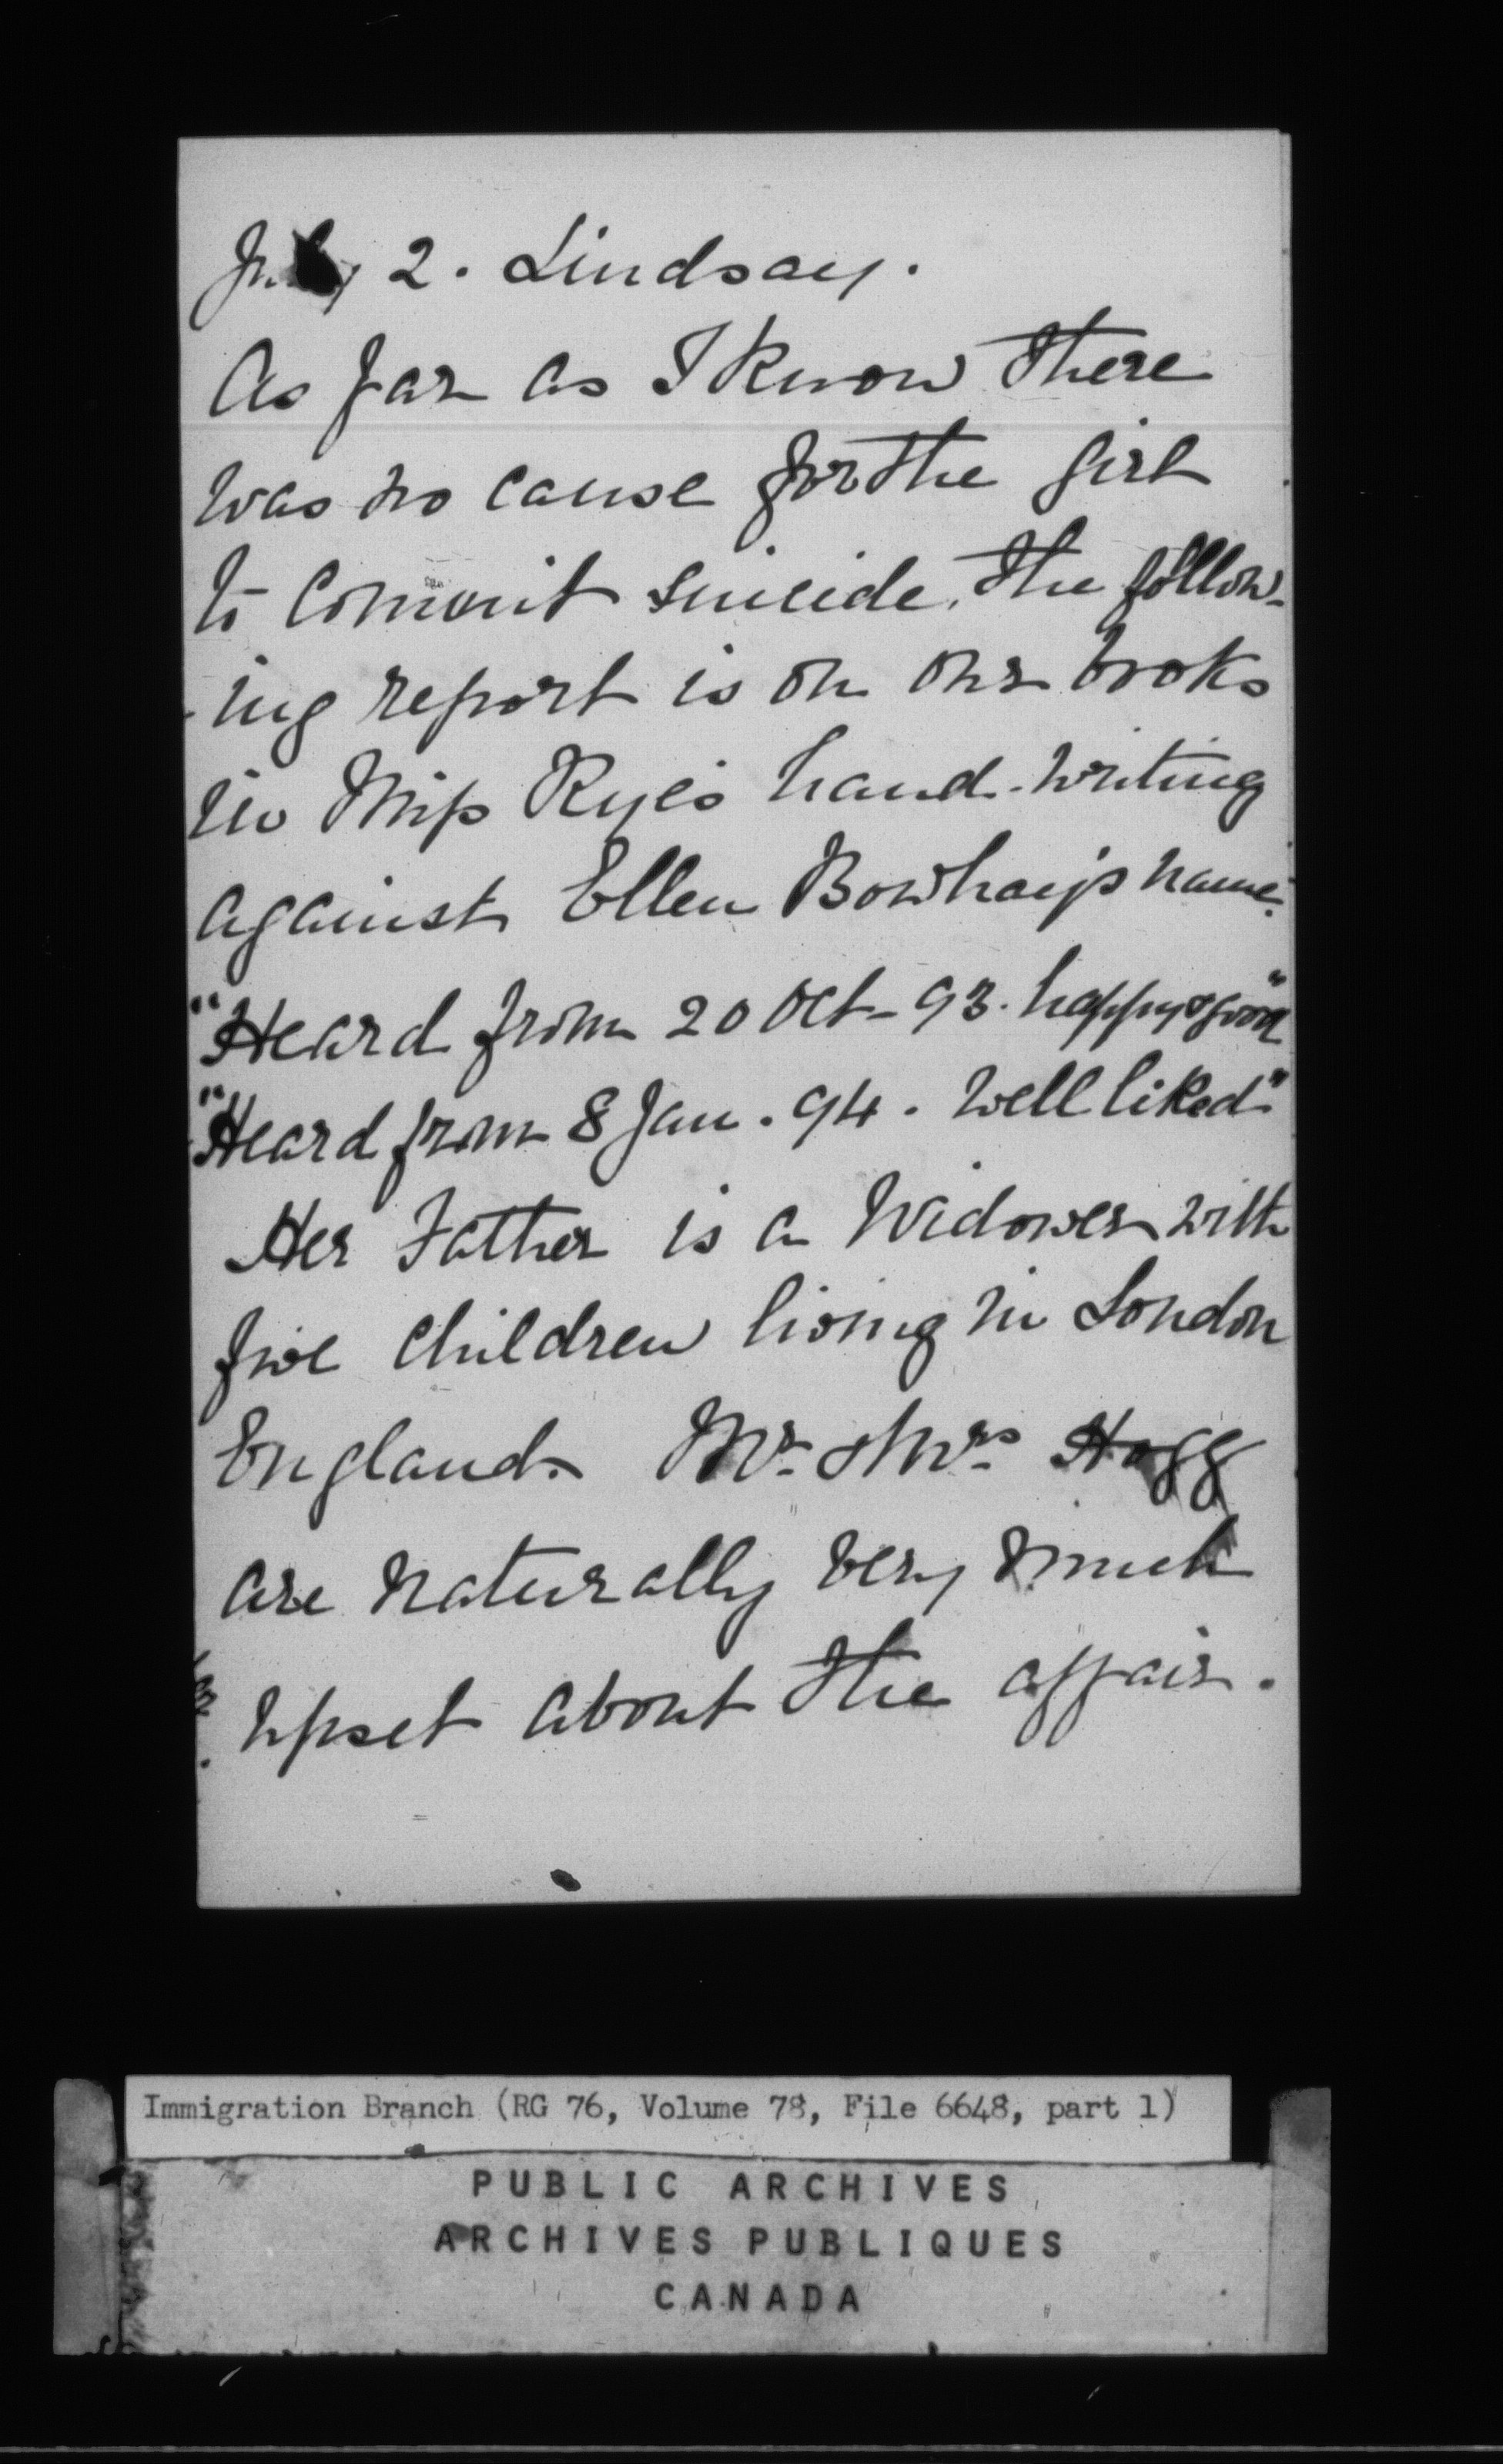 July 2. Lindsay.
As far as I know there
was no cause for the girl
to commit suicide. The follow-
ing report is on our books
in Miss Rye's hand-writing
against Ellen Bowhay's name.
"Heard from 20 Oct - 93. happy & good"
"Heard from 8 Jan. 94. Well liked"
Her Father is a Widower with
five children living in London
England. Mr. & Mrs. Hogg
are naturally very much
upset about the affair.
Immigration Branch (RG 76, Volume 78, File 6648, part 1)
PUBLIC ARCHIVES
ARCHIVES PUBLIQUES
CANADA